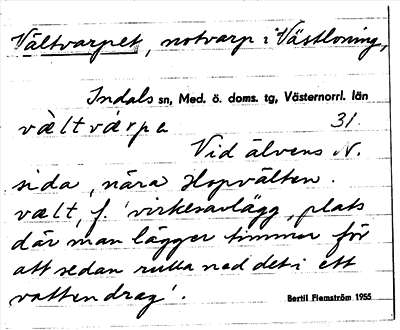 Vältvarpet, notvarp i Västloning,
Indals sn, Med. ö. doms. tg, Västernorrl. län
vä̀ltvárpə 31.
Vid älvens N.
sida, nära Hopvälten.
vælt, f. 'virkesavlägg, plats
där man lägger timmer för
att sedan rulla ned det i ett
vattendrag'.
Bertil Flemström 1955